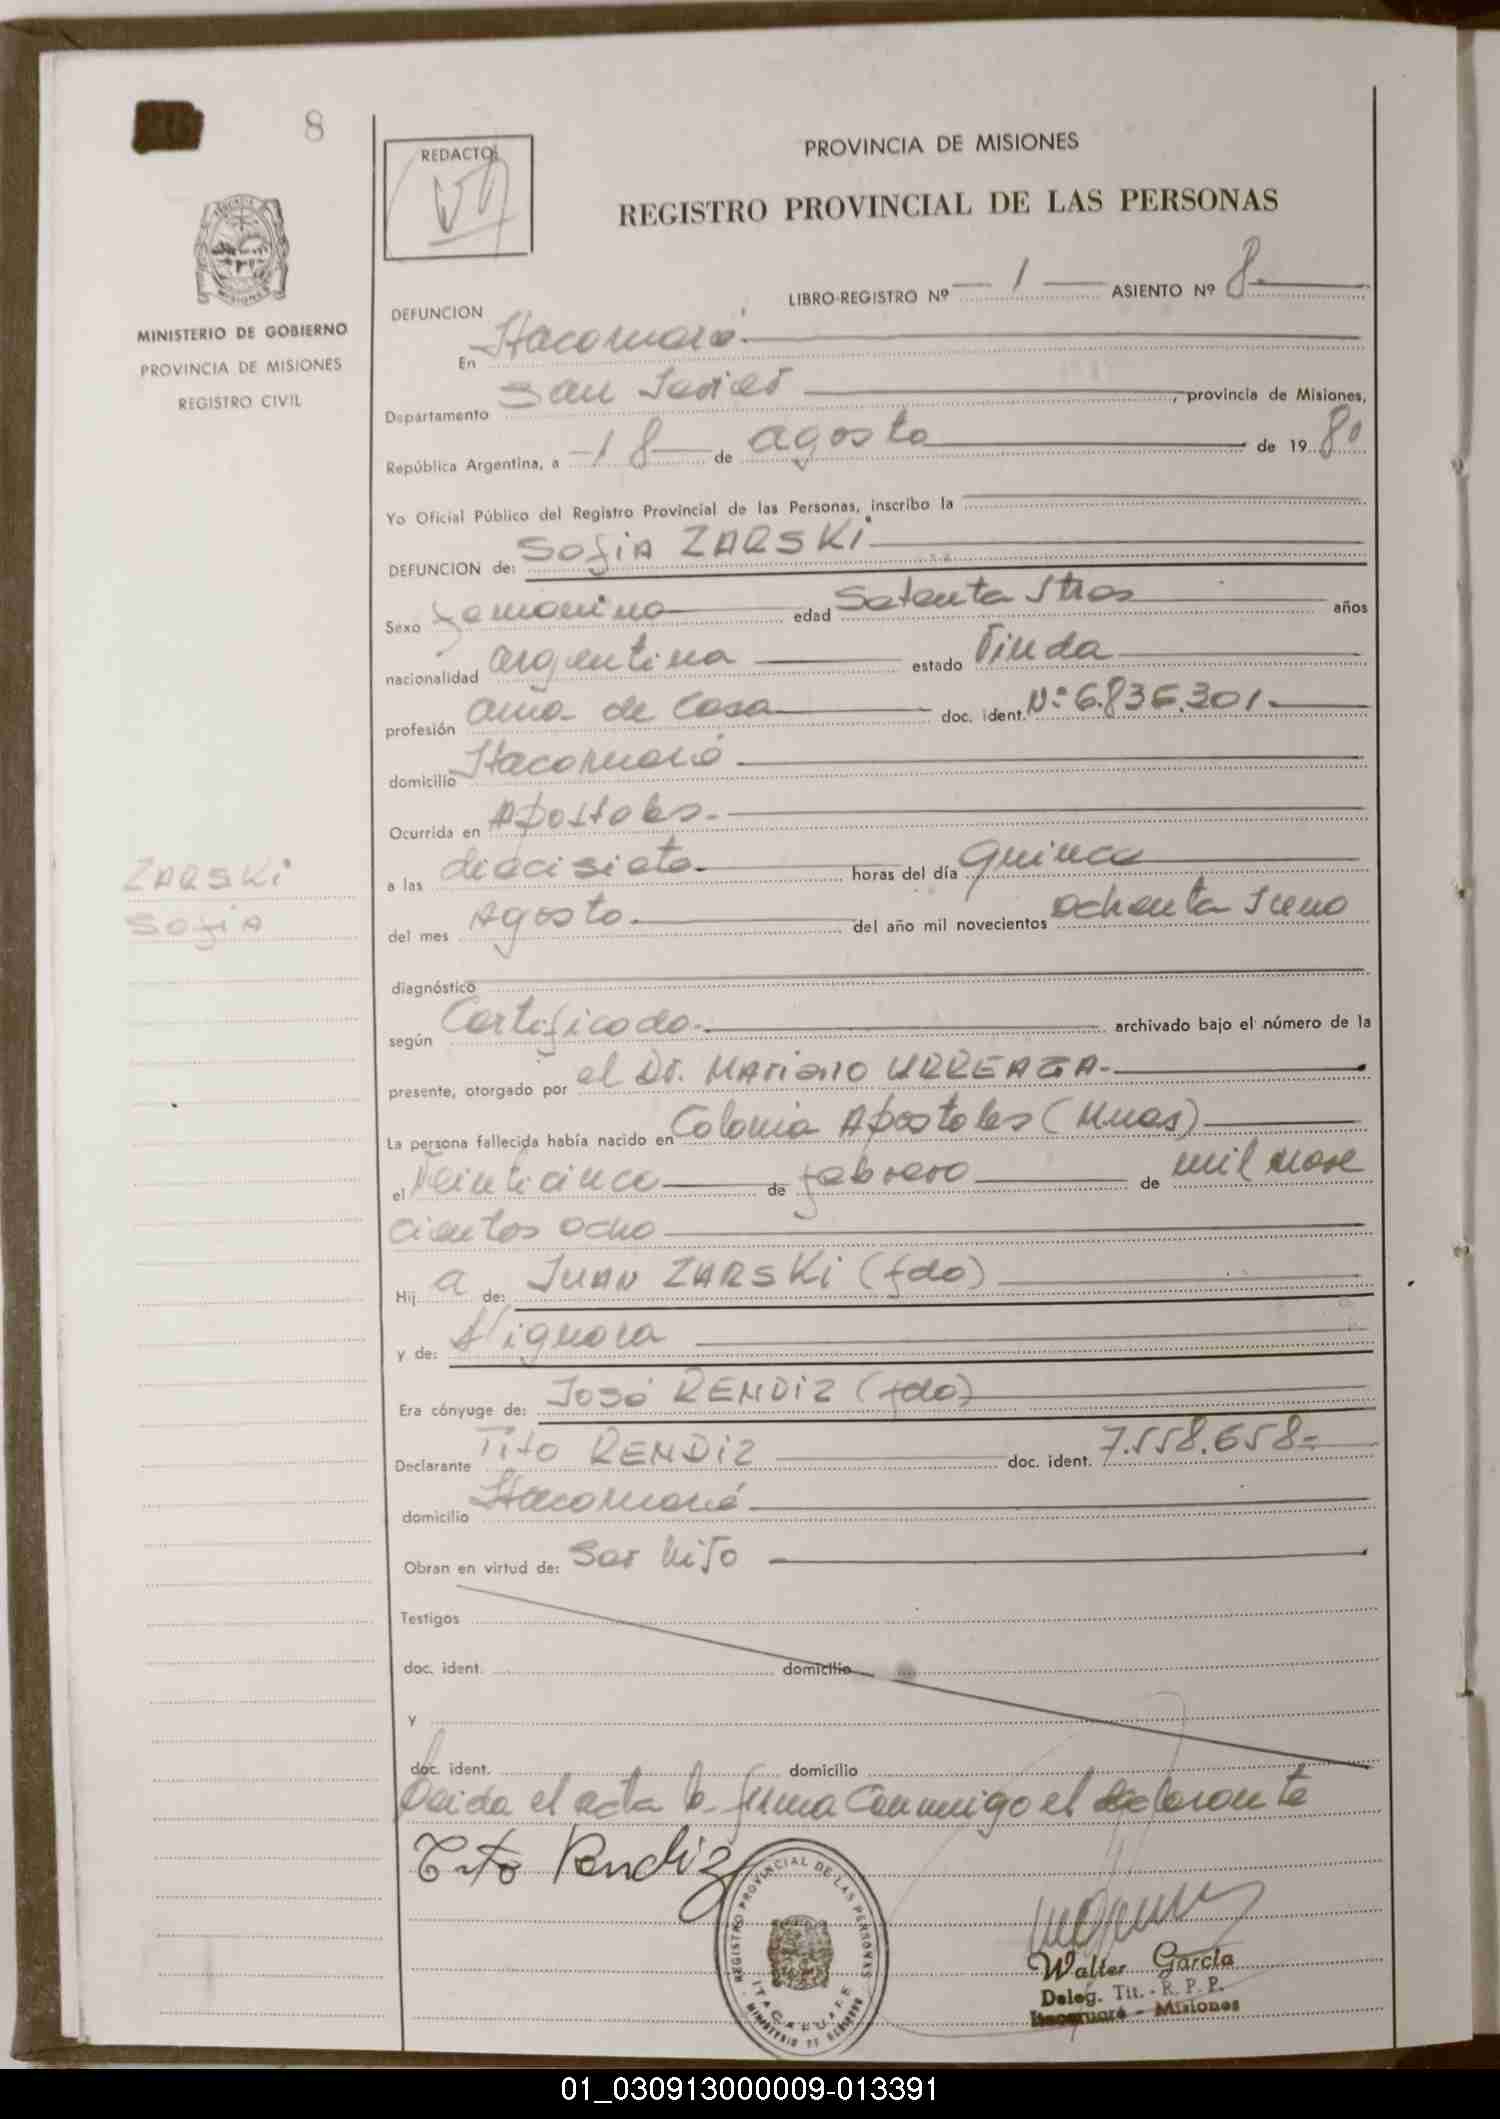 8
REDACTO:
PROVINCIA DE MISIONES
REGISTRO PROVINCIAL DE LAS PERSONAS
MINISTERIO DE GOBIERNO
PROVINCIA DE MISIONES
REGISTRO CIVIL
LIBRO-REGISTRO Nº 1 ASIENTO Nº 8
DEFUNCION
En Itacaruaré
Departamento San Javier, provincia de Misiones,
República Argentina, a 18 de agosto de 1980
Yo Oficial Público del Registro Provincial de las Personas, inscribo la
DEFUNCION de: Sofia ZARSKI
Sexo femenino edad Setenta y tres años
nacionalidad argentina estado Viuda
profesión ama de casa doc. ident. Nº 6.836.301.-
domicilio Itacaruaré
Ocurrida en Apostoles.
a las diecisiete horas del día quince
del mes Agosto del año mil novecientos ochenta y uno
diagnóstico
según Certificado archivado bajo el número de la
presente, otorgado por el Dr. Mariano URREAGA-
La persona fallecida había nacido en Colonia Apostoles (Mnes)
el Veinticinco de febrero de mil nove
cientos ocho
Hija de: JUAN ZARSKI (fdo)
y de: Signora
Era cónyuge de: José RENDIZ (fdo)
Declarante Tito RENDIZ doc. ident. 7.558.658=
domicilio Itacaruaré
Obran en virtud de: Ser hijo
Testigos
doc. ident. domicilio
y
doc. ident. domicilio
Leida el acta la firma conmigo el declarante
Tito Rendiz
ZARSKI
Sofia
REGISTRO PROVINCIAL DE LAS PERSONAS
MINISTERIO DE GOBIERNO
Walter García
Deleg. Tit. - R. P. P.
Itacaruaré - Misiones
01_030913000009-013391